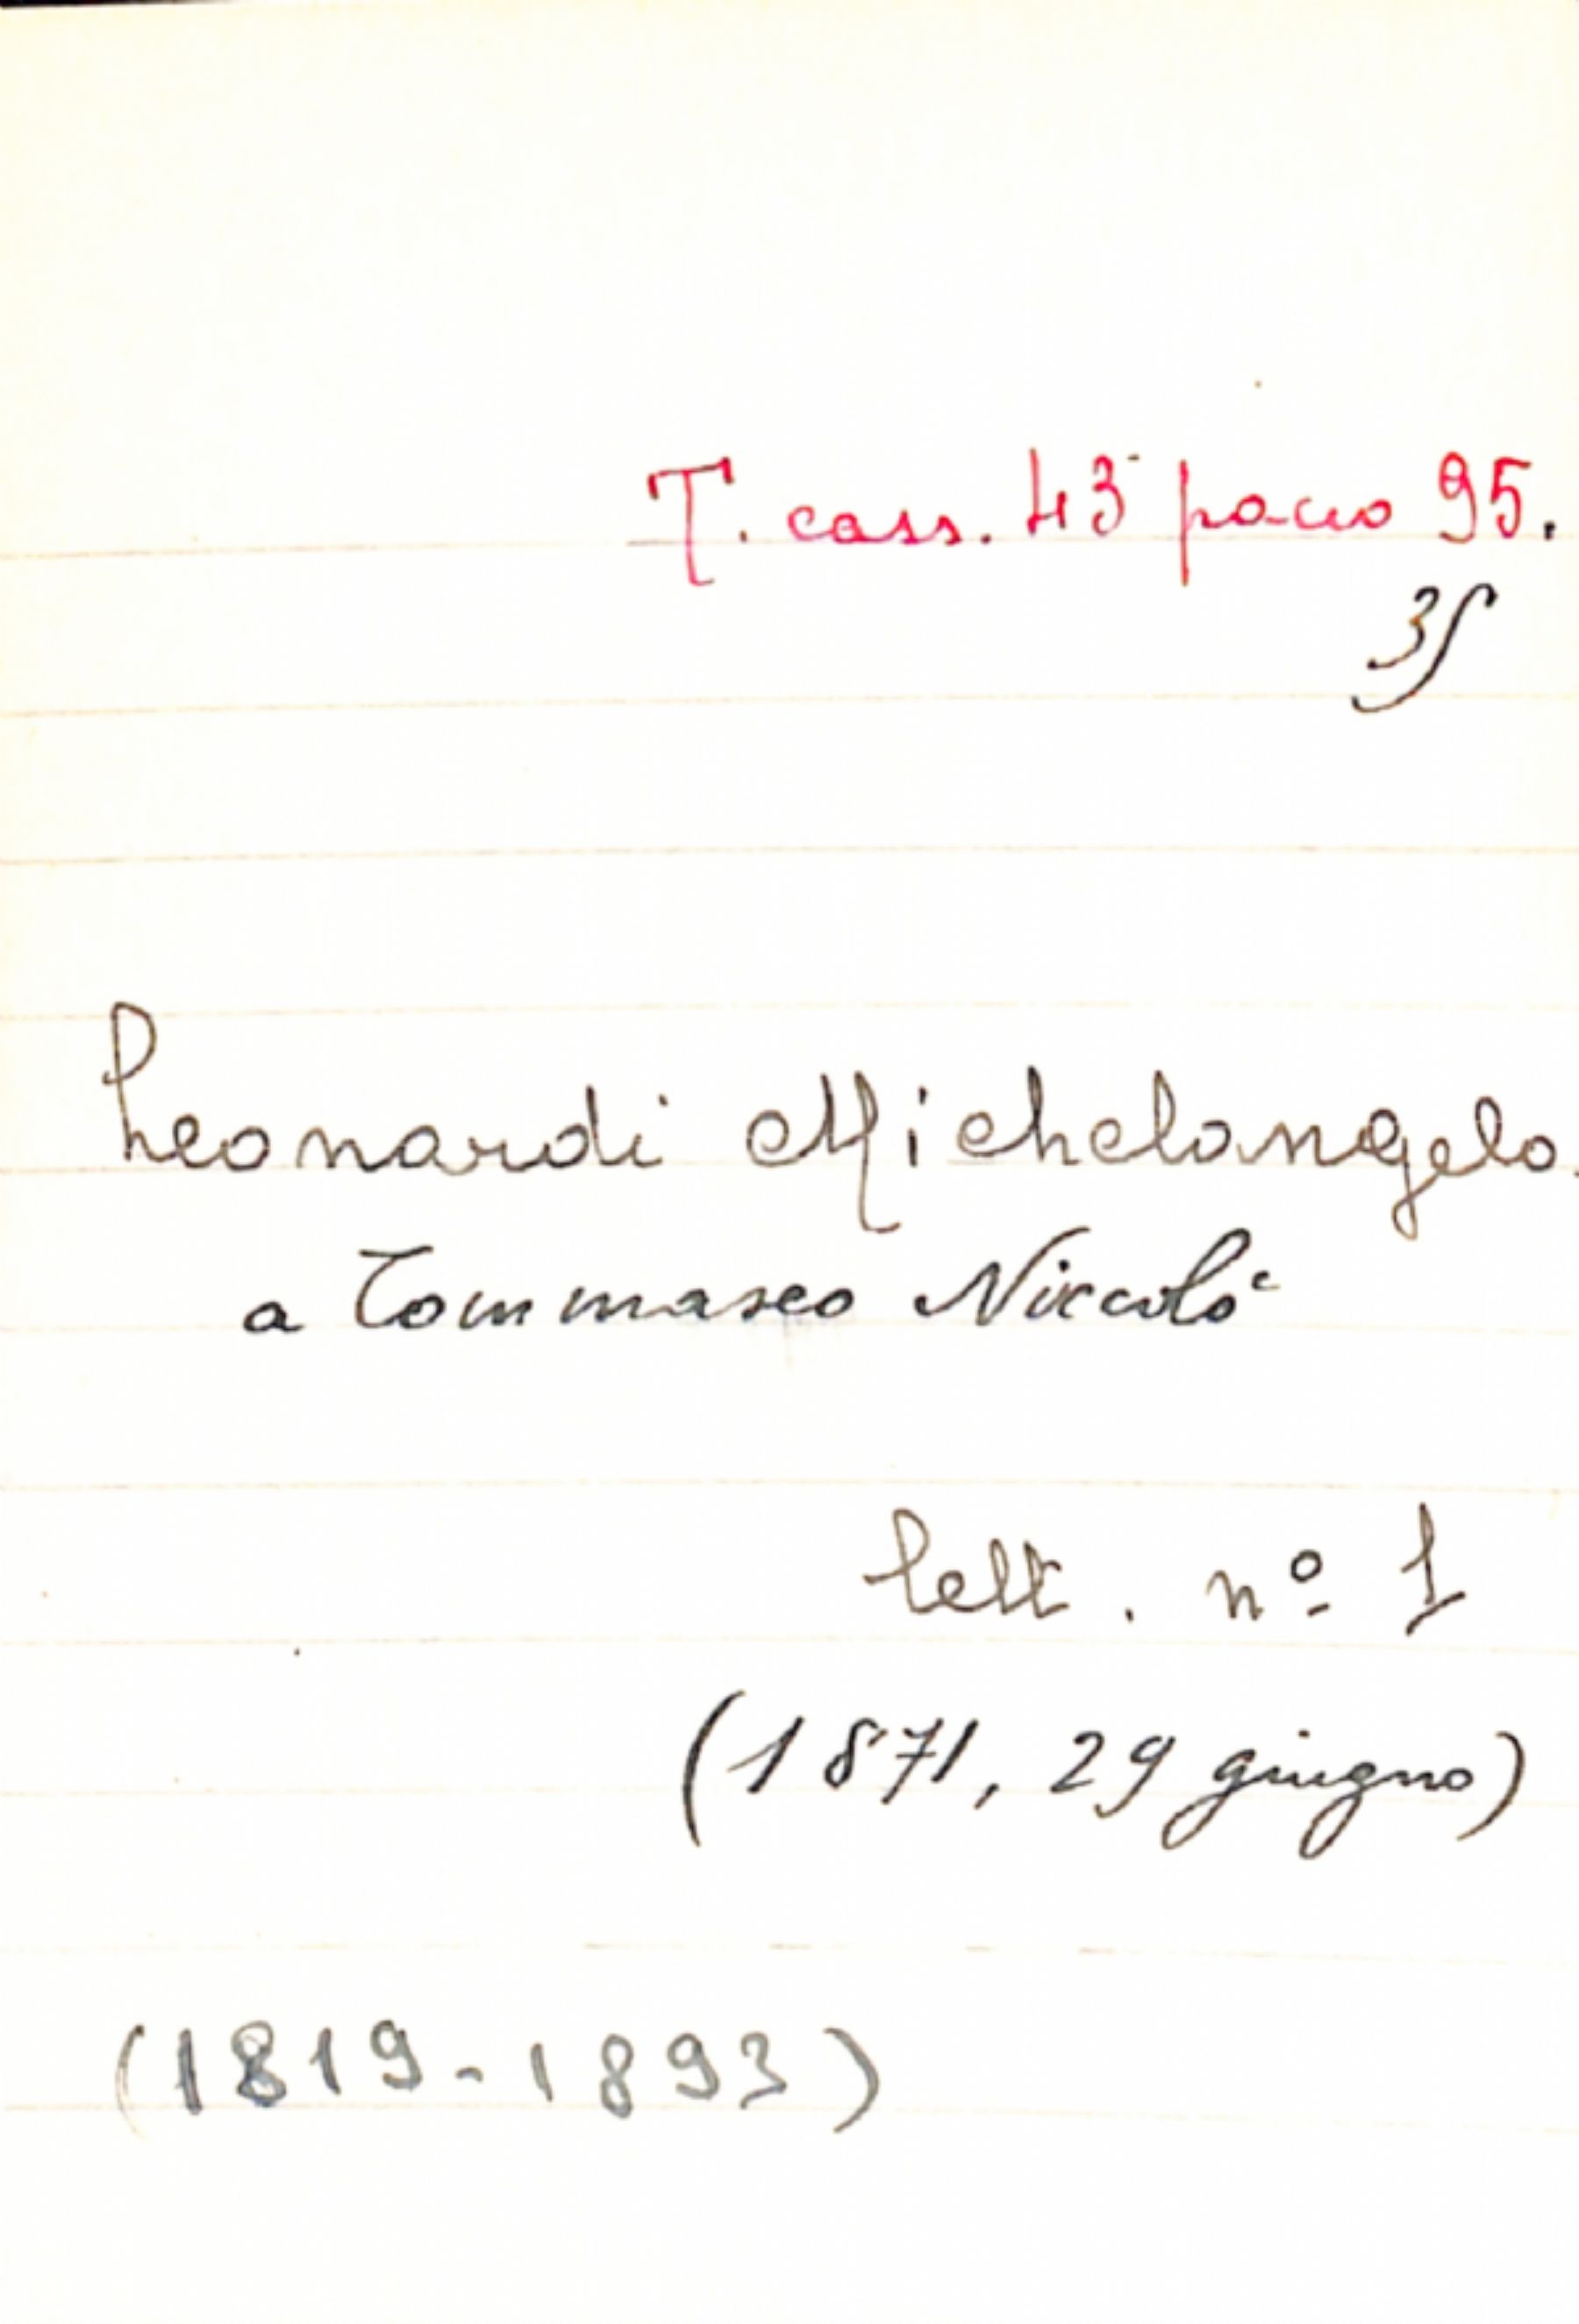 T. cass. 43 pacco 95.
35
Leonardi Michelangelo.
a Tommaseo Niccolò
lett. nº 1
(1871, 29 giugno)
(1819-1893)